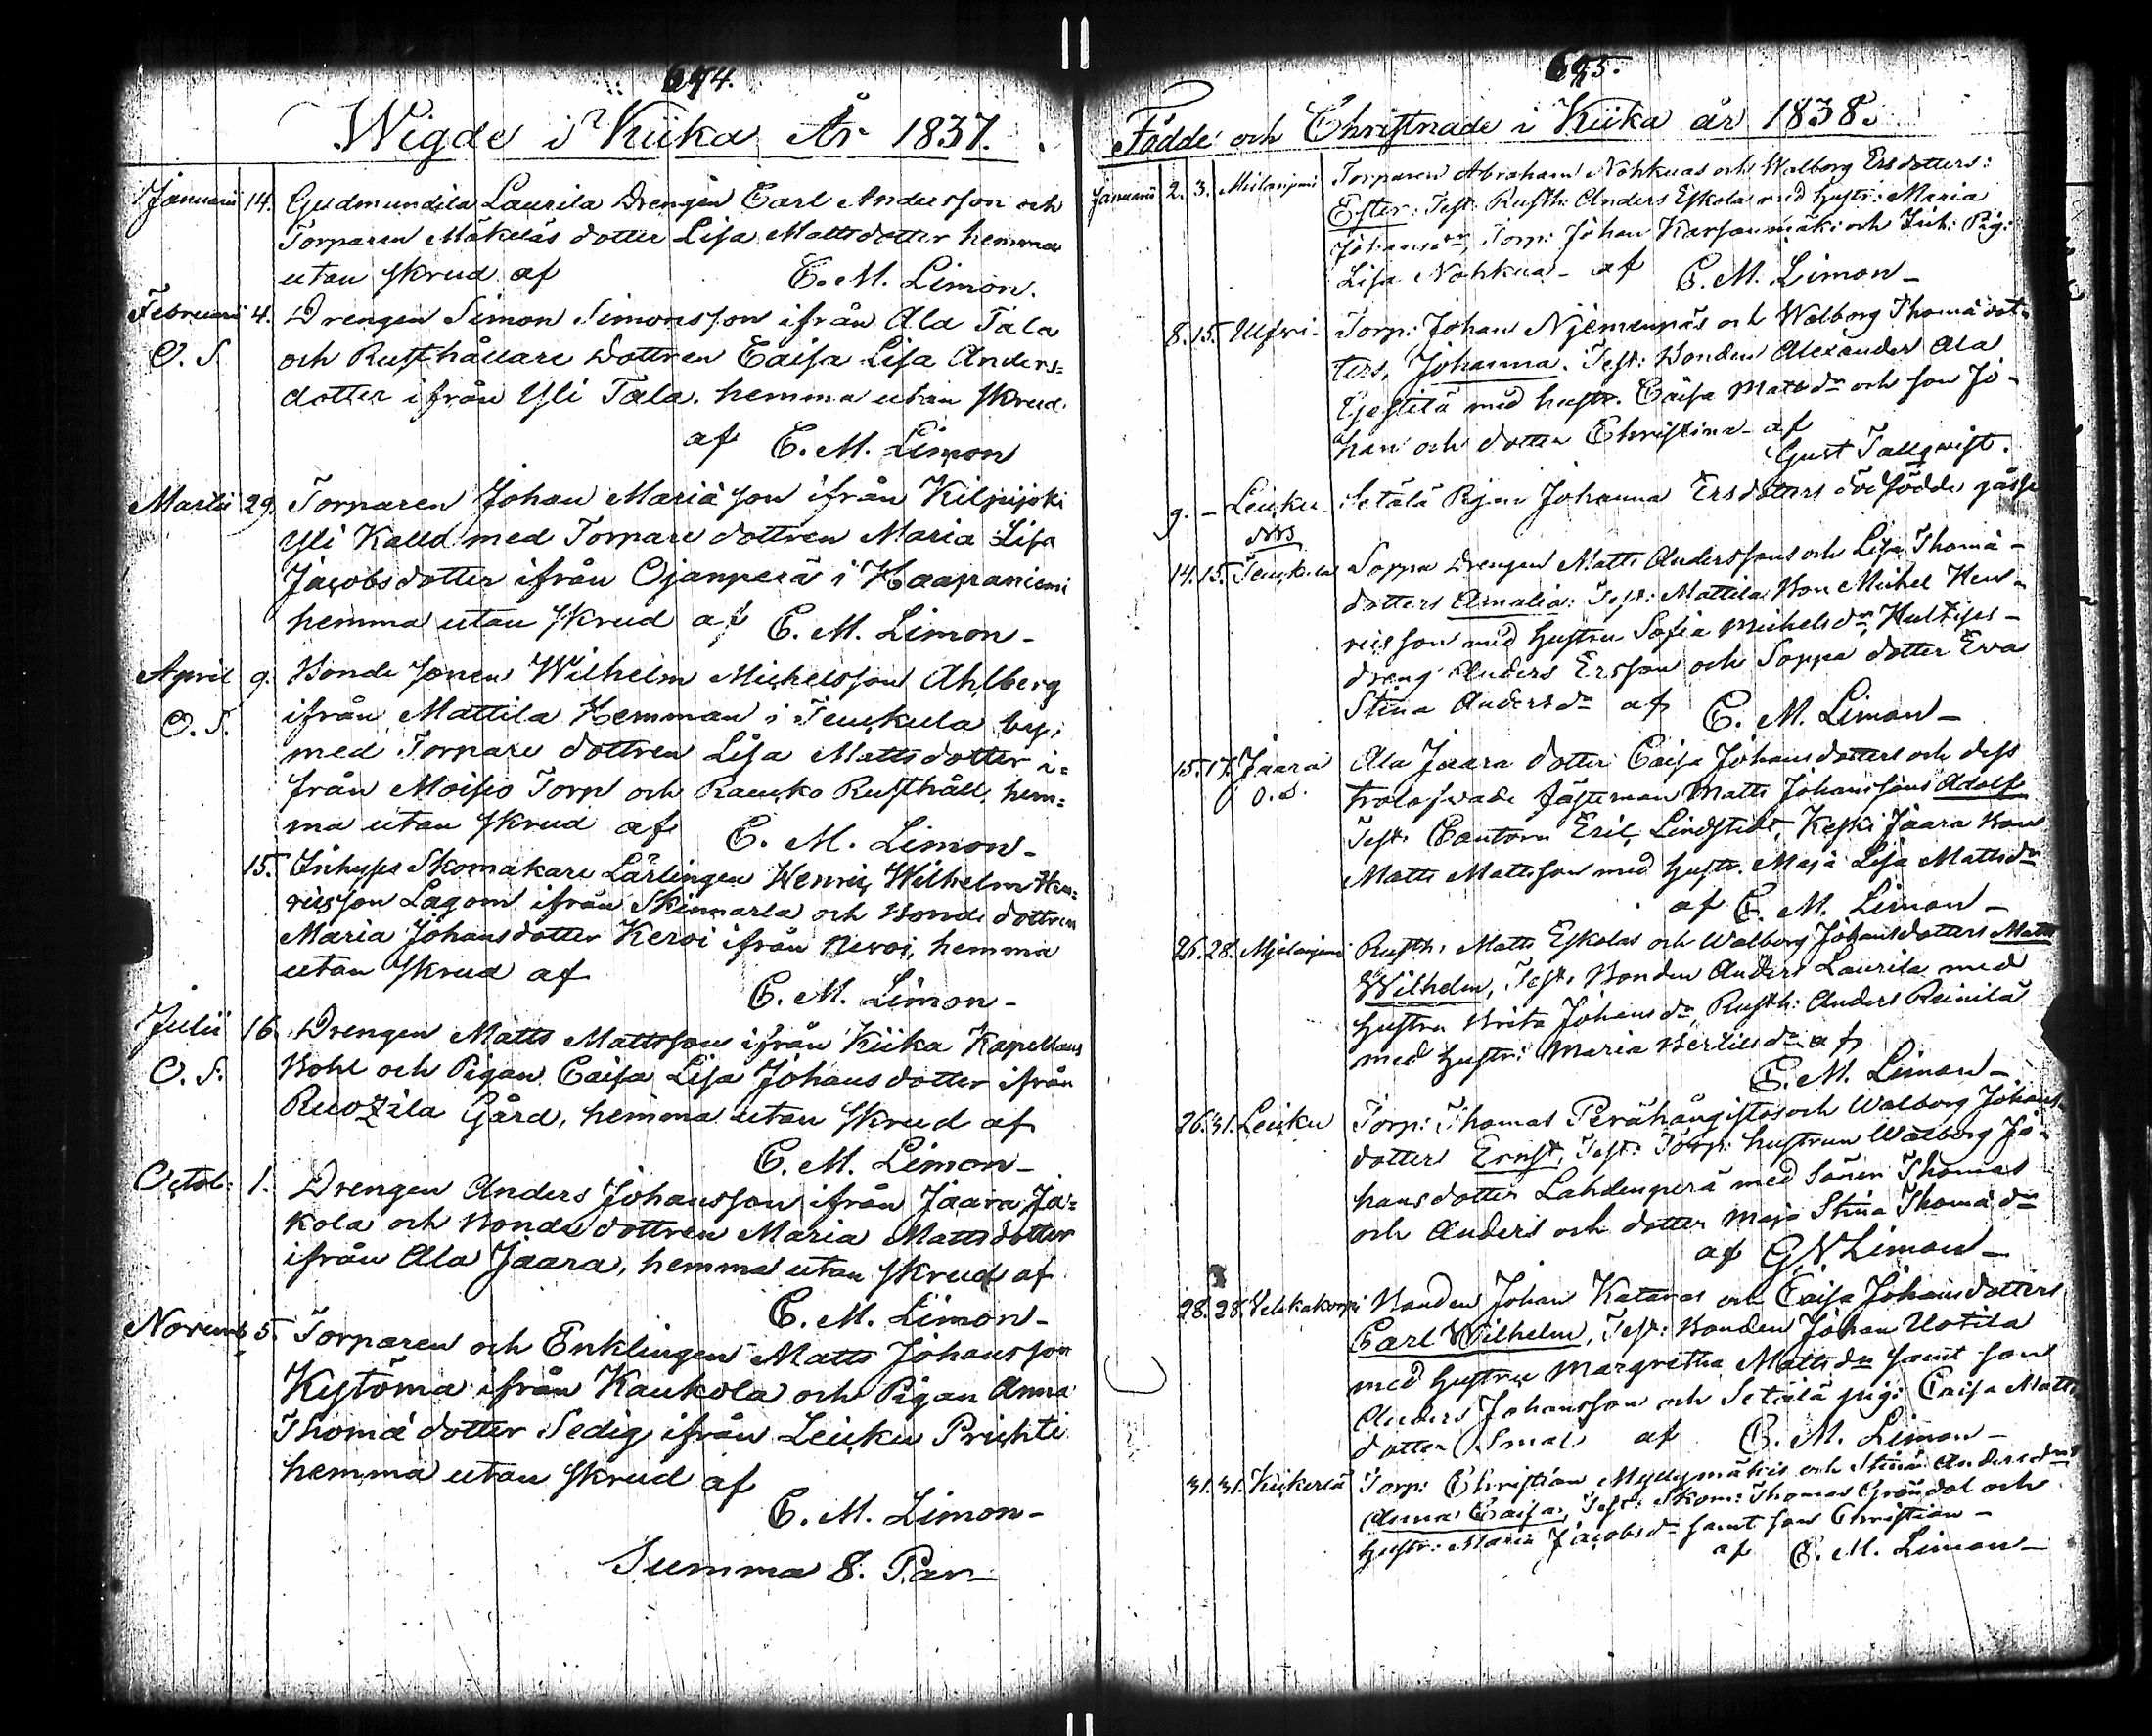 694.
Wigde i Kiika År 1837.
Januarii 14. Gudmundila Laurila Drengen Carl Andersson och
Torparen Mäkeläs dotter Lisa Mattsdotter hemma
utan skrud af C. M. Limon.
Februarii 4. Drengen Simon Simonsson ifrån Ala Tala
O. S. och Rusthållare dottren Caisa Lisa Anders=
dotter ifrån Yli Tala. hemma utan skrud.
af C. M. Limon
Martii 29. Torparen Johan Mariæ son ifrån Kilpijoki
Yli Kalld med Torpare dottren Maria Lisa
Jacobsdotter ifrån Ojanperä i Haapaniemi
hemma utan skrud af C. M. Limon -
April 9. Bonde sonen Wilhelm Michelsson Ahlberg
O. S. ifrån Mattila Hemman i Teukula by,
med Torpare dottren Lisa Mattsdotter i=
från Moisio Torp och Raukko Rusthåll, hem=
ma utan skrud af C. M. Limon -
15. Inhyses Skomakare Lärlingen Henric Wilhelm Hen=
ricsson Lagom ifrån Skinnarla och Bonde dottren
Maria Johansdotter Keroi ifrån Keroi, hemma
utan skrud af
C. M. Limon -
Julii 16 Drengen Matts Mattsson ifrån Kiika Kapellans
O. S. Bohl och Pigan Caisa Lisa Johansdotter ifrån
Ruozila Gård, hemma utan skrud af
C. M. Limon -
Octob: 1. Drengen Anders Johansson ifrån Jaara Ja=
kola och Bonde dottren Maria Mattsdotter
ifrån Ala Jaara, hemma utan skrud af
C. M. Limon -
Novemb 5. Torparen och Enklingen Matts Johansson
Kystöma ifrån Kaukola och Pigan Anna
Thomæ dotter Sedig ifrån Leuku Prichti
hemma utan skrud af
C. M. Limon -
Summa 8. Par -
695.
Födde och Christnade i Kiika år 1838.
Januarii 2. 3. Torparen Abraham Nohkuas och Walborg Ersdotters:
Ester: Test: Rusth: Anders Eskola med hustr: Maria
Johansdr, Torp: Johan Karsanmäki och Inh: Pig:
Lisa Nohkua - af C. M. Limon -
8. 15. Torp: Johan Njemenpäs och Walborg Thomædot=
ters, Johanna. Test: Bonden Alexander Ala
med hustr. Caisa Mattsdr och son Jo=
han och dotter Christina - af
Gust Tallqvist.
9. - Leuku - Setälä Pigan Johanna Ersdotters dödfödde gåsse
14. 15. Teukula Soppa Drengen Matts Anderssons och Lisa Thomæ -
dotters Amalia: Test: Mattila Bon Michel Hen=
ricsson med hustru Sofia Michelsdr,
dreng Anders Ersson och Soppa dotter Eva
Stina Andersdr af C. M. Limon -
15. 17. Jaara Ala Jaara dotter Caisa Johansdotters och dess
O. S. trolofwade fästeman Matts Johanssons Adolf
Test: Cantorn Eric Lindstedt, Keski Jaara Bon
Matts Mattsson med hustr. Maja Lisa Mattsdr
af C. M. Limon -
26. 28. Rusth: Matts Eskolas och Walborg Johansdotters Matts
Wilhelm, Test: Bonden Anders Laurila med
hustru Brita Johansdr, Rusth: Anders Reinilä
med hustr: Maria Bertilsdr af
C. M. Limon -
26. 31. Leuku Torp: Thomas Perähangistos och Walborg Johans=
dotters Ernst, Test: Torp: hustrun Walborg Jo=
hansdotter Lahdenperä med sönen Thomas
och Anders och dotter Maja Stina Thomædr
af G N Limon -
28. 28. Bonden Johan Kataras och Caisa Johansdotters
Carl Wilhelm, Test: Bonden Johan Uotila
med hustru Margretha Mattsdr samt son
Anders Johansson och Setälä pig: Caisa Matts
dotter Smal: af C. M. Limon -
31. 31. Kiikerlä Torp: Christian Myllymäkis och Stina Andersdrs
Anna Caisa, Test: Skom: Thomas Gröndal och
hustr: Maria Jacobsdr samt son Christian -
af C. M. Limon -